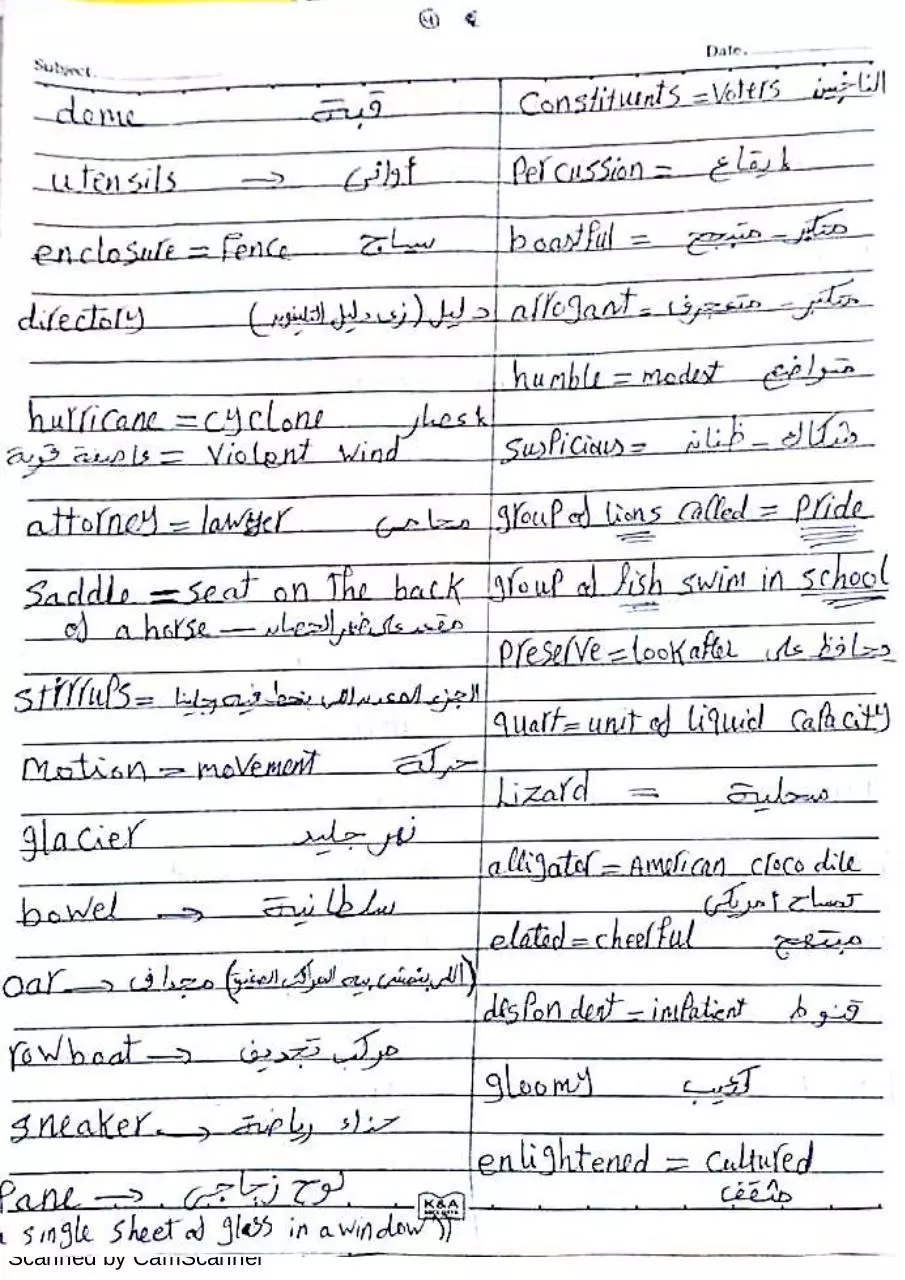 Subject.
Date.
dome قبة
utensils → أواني
enclosure = Fence سياج
directory دليل (زى دليل التليفون)
hurricane = cyclone اعصار
عاصفة قوية = Violent Wind
attorney = lawyer محامى
Saddle = seat on The back
of a horse — مقعد على ضهر الحصان
stirrups = الجزء الحديد اللى بنحط فيه رجلينا
Motion = movement حركة
glacier نهر جليد
bowel → سلطانية
oar → مجداف (اللى بنمشى بيه المراكب)
rowboat → مركب تجديف
sneaker → حذاء رياضة
Pane → لوح زجاجى
single sheet of glass in a window))
K&A
Constituents = Voters الناخبين
Percussion = إيقاع
boastful = متكبر - متبجح
arrogant = متعجرف - متكبر
humble = modest متواضع
Suspicious = شكاك - ظنان
group of lions called = Pride
group of fish swim in school
Preserve = look after يحافظ على
quart = unit of liquid capacity
Lizard = سحلية
alligator = American croco dile
تمساح أمريكى
elated = cheerful مبتهج
despondent = impatient قنوط
gloomy كئيب
enlightened = Cultured
مثقف
Scanned by CamScanner